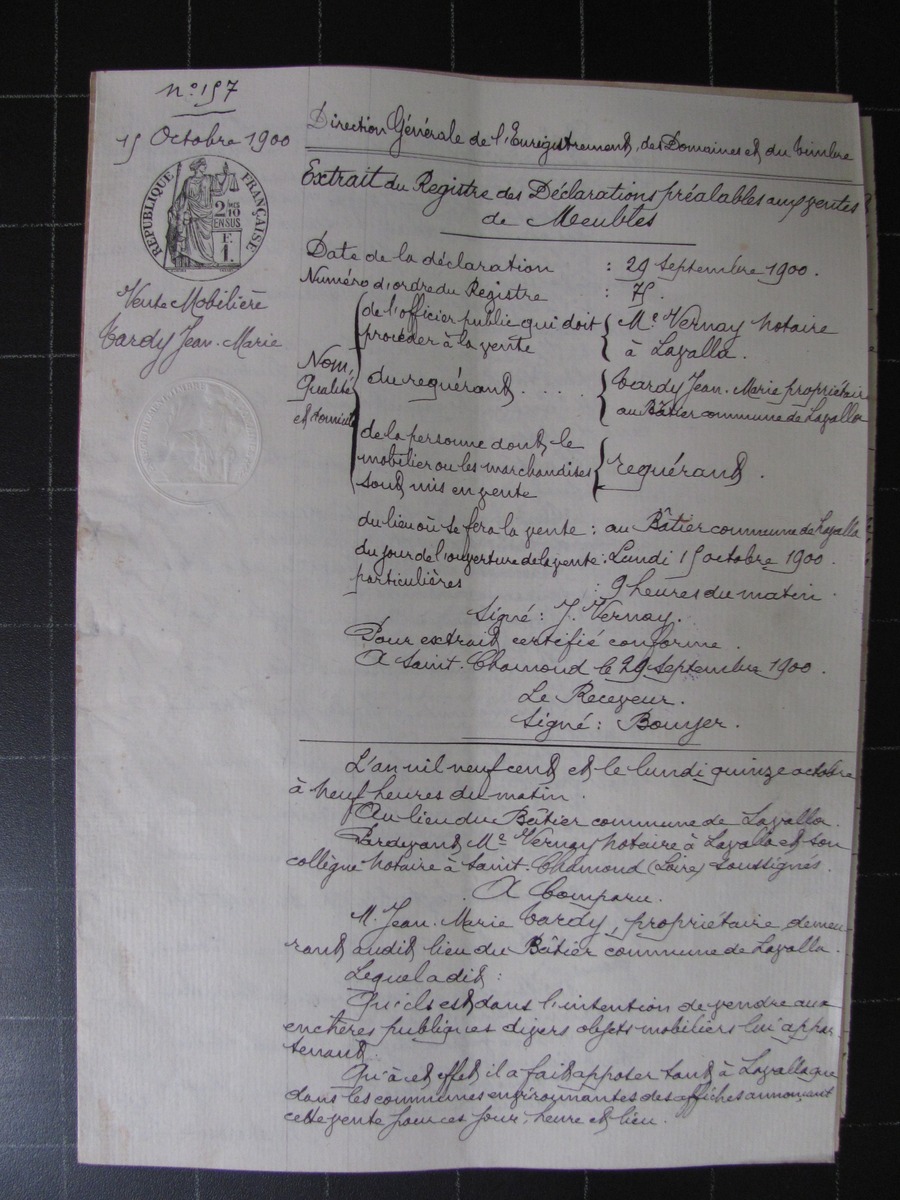 nº 157
15 Octobre 1900
RÉPUBLIQUE FRANÇAISE
2/10 MES
EN SUS
F.
1.
Vente Mobilière
Tardy Jean-Marie
Direction Générale de l'Enregistrement, des Domaines et du timbre
Extrait du Registre des Déclarations préalables aux ventes
de Meubles
Date de la déclaration : 29 Septembre 1900.
Numéro d'ordre du Registre : 75.
Nom, Qualité et domicile
de l'officier public qui doit procéder à la vente
Me Vernay notaire
à Lavalla.
du requérant . . . .
Tardy Jean-Marie propriétaire
au Bâtier commune de Lavalla
de la personne dont le
mobilier ou les marchandises
sont mis en vente
requérant.
du lieu où se fera la vente : au Bâtier commune de Lavalla
du jour de l'ouverture de la vente : Lundi 15 octobre 1900.
particulières : 9 heures du matin.
Signé : J. Vernay.
Pour extrait certifié conforme.
A Saint-Chamond le 29 Septembre 1900.
Le Receveur.
Signé : Bouyer.
L'an mil neuf cent et le lundi quinze octobre
à neuf heures du matin.
Au lieu du Bâtier commune de Lavalla.
Pardevant Me Vernay notaire à Lavalla et son
collègue notaire à Saint-Chamond (Loire) soussignés.
A Comparu.
M. Jean-Marie Tardy, propriétaire, demeu-
rant audit lieu du Bâtier commune de Lavalla.
Lequel a dit :
Qu'ils est dans l'intention de vendre aux
enchères publiques divers objets mobiliers lui appar-
tenant.
Qu'à cet effet il a fait apposer tant à Lavalla que
dans les communes environnantes des affiches annonçant
cette vente pour ces jour, heure et lieu.